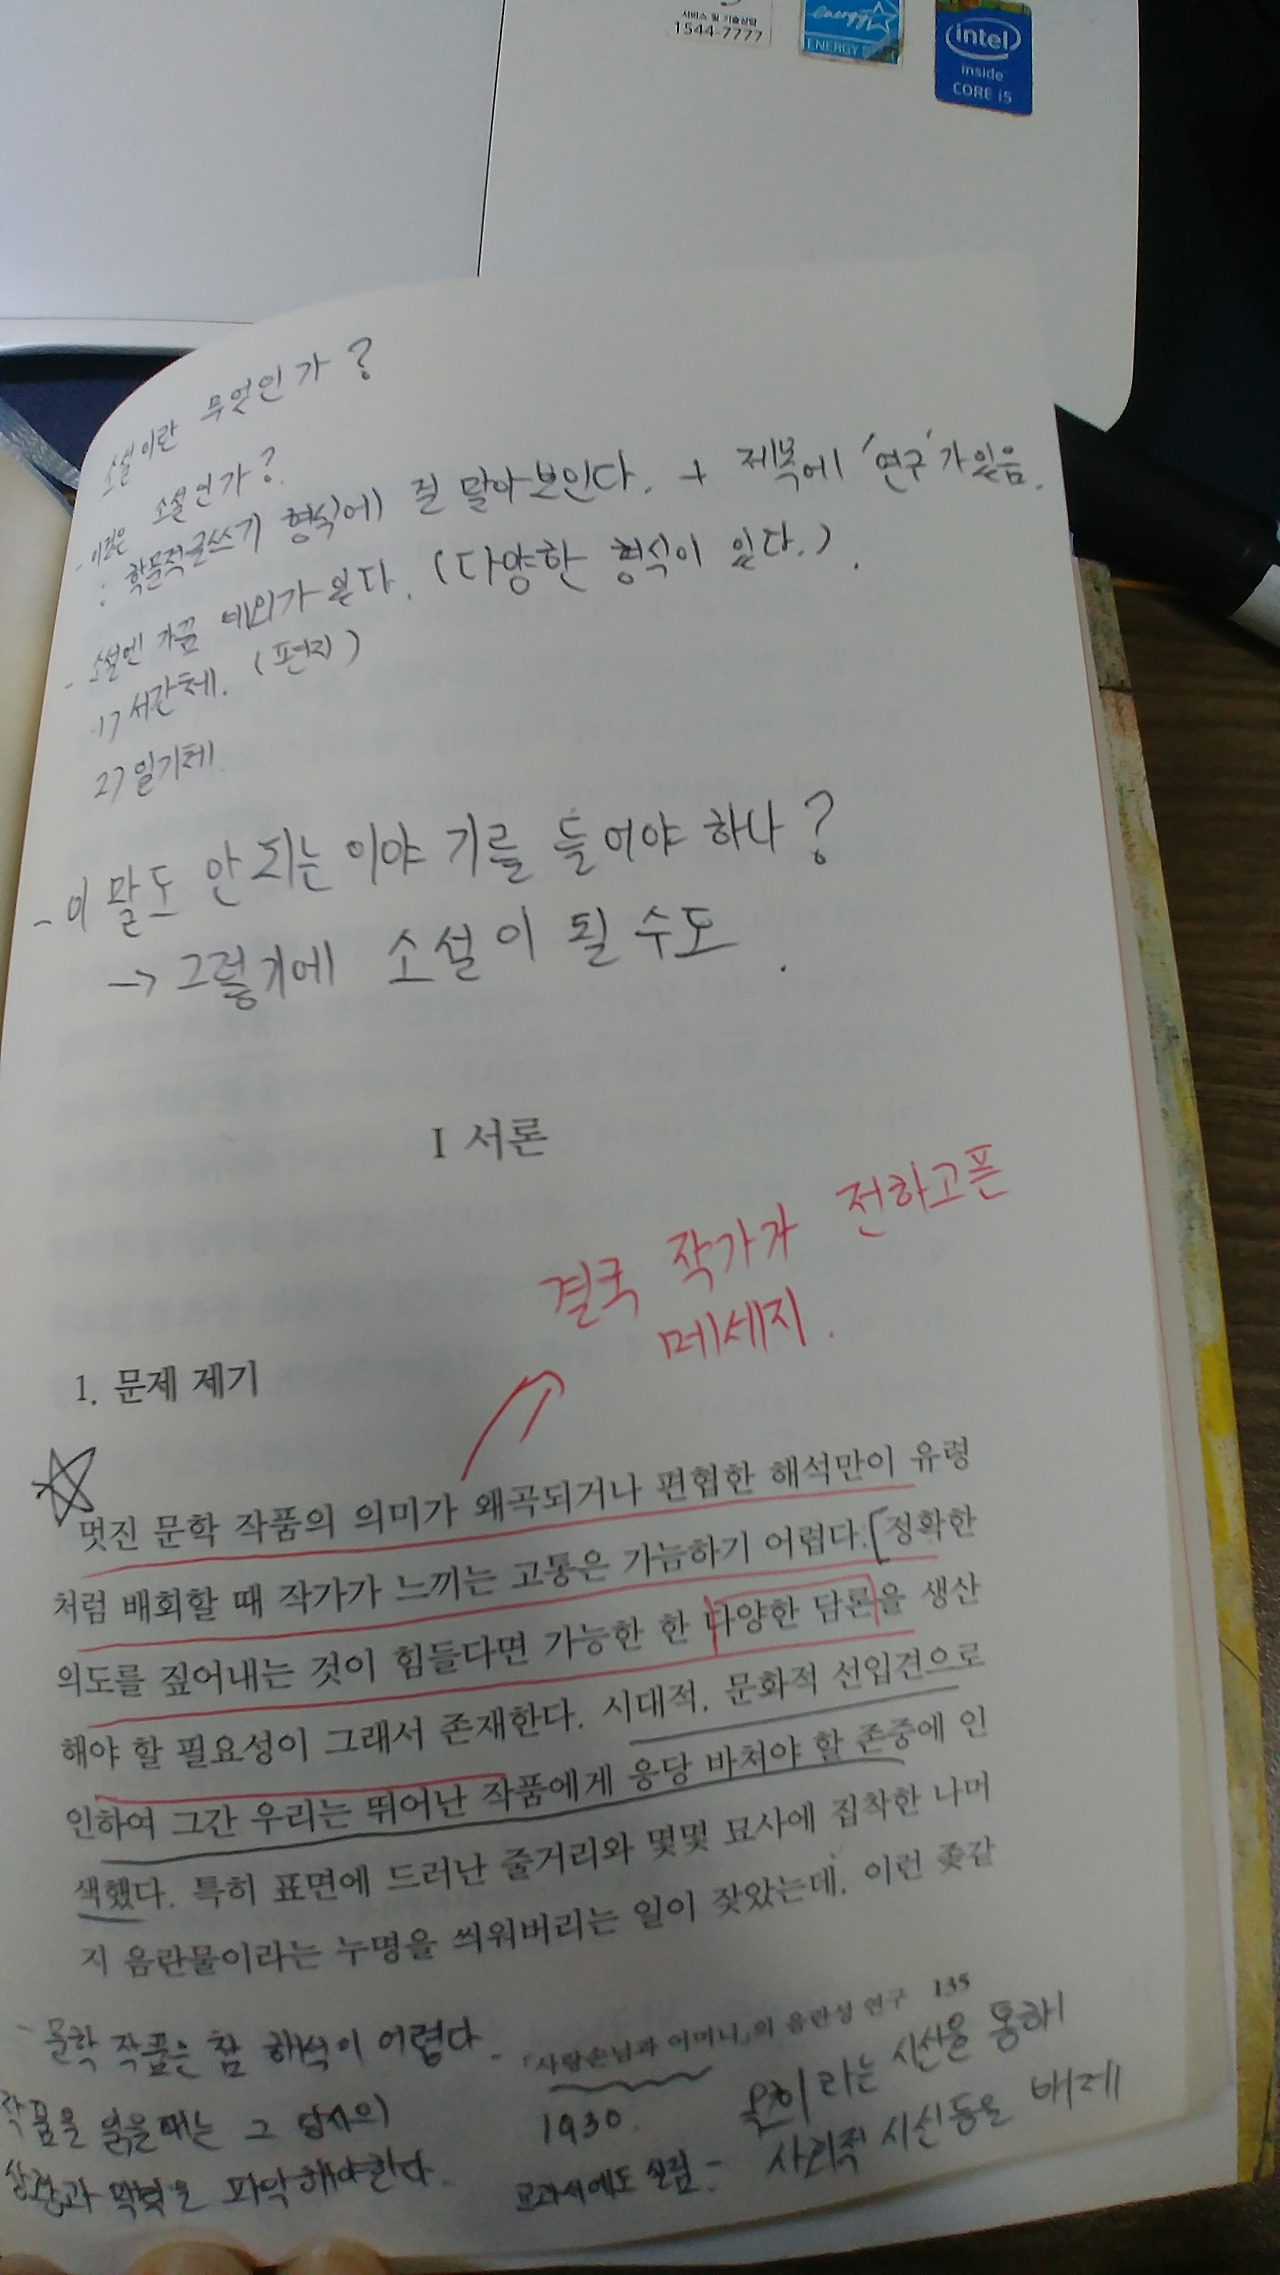 서비스 및 기술상담
1544-7777
energy
ENERGY STAR
intel
inside
CORE i5
소설이란 무엇인가?
- 이것은 소설인가?
: 학문적글쓰기 형식에 잘 맞아보인다. + 제목에 '연구'가 있음.
- 소설엔 가끔 예외가 있다. (다양한 형식이 있다.)
1) 서간체. (편지)
2) 일기체
- 이 말도 안되는 이야기를 들어야 하나?
→ 그렇기에 소설이 될 수도.
I 서론
결국 작가가 전하고픈
메세지.
1. 문제 제기
멋진 문학 작품의 의미가 왜곡되거나 편협한 해석만이 유령
처럼 배회할 때 작가가 느끼는 고통은 가늠하기 어렵다. [정확한
의도를 짚어내는 것이 힘들다면 가능한 한 다양한 담론을 생산
해야 할 필요성이 그래서 존재한다. 시대적, 문화적 선입견으로
인하여 그간 우리는 뛰어난 작품에게 응당 바쳐야 할 존중에 인
색했다. 특히 표면에 드러난 줄거리와 몇몇 묘사에 집착한 나머
지 음란물이라는 누명을 씌워버리는 일이 잦았는데, 이런 좆같
「사랑손님과 어머니」의 음란성 연구 135
- 문학 작품은 참 해석이 어렵다.
작품을 읽을때는 그 당시의
상황과 맥락을 파악해야한다.
1930.
교과서에도 실림. -
옥희라는 시선을 통해
사회적 시선등을 배제